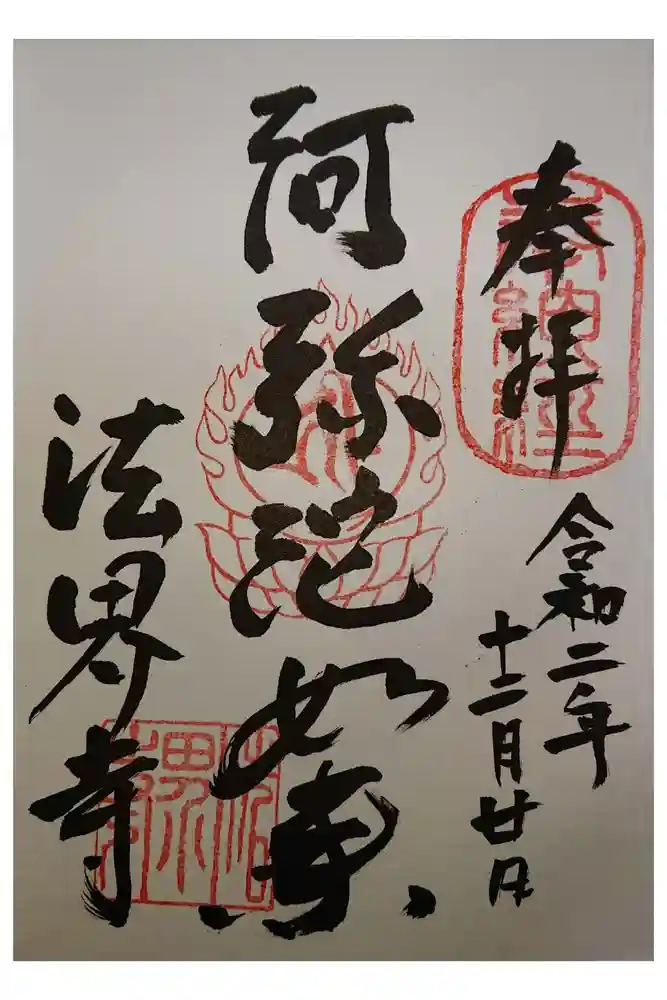 奉拝
令和二年
十二月廿日
阿弥陀如来
法界寺